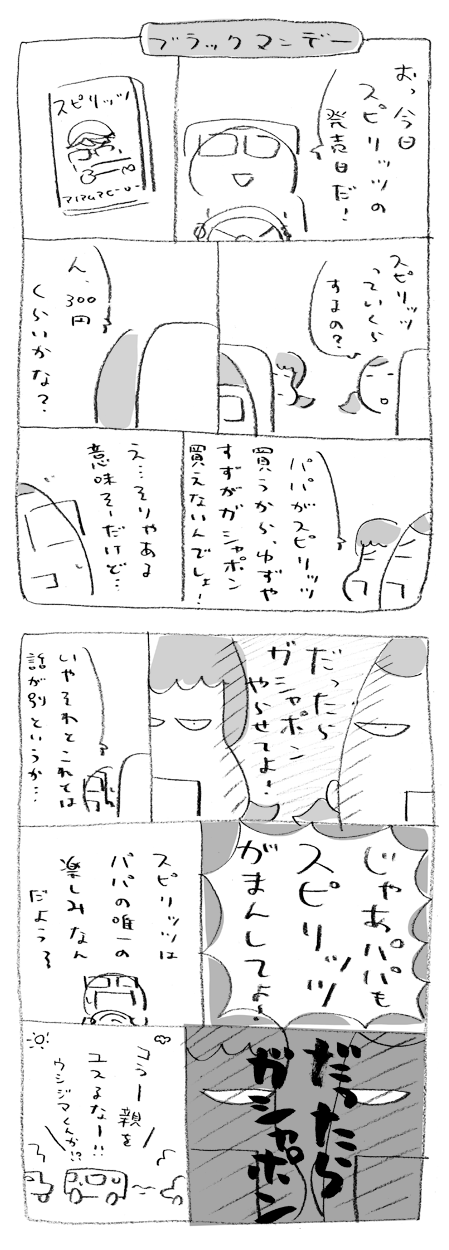 ブラックマンデー
おっ今日
スピリッツの
発売日だ！
スピリッツ
スピリッツ
っていくら
するの？
ん、300円
くらいかな？
パパがスピリッツ
買うから、ゆずや
すずがガシャポン
買えないんでしょ！
え…そりゃある
意味そーだけど…
だったら
ガシャポン
やらせてよ！
いやそれとこれとは
話が別というか…
じゃあパパも
スピリッツ
がまんしてよ！
スピリッツは
パパの唯一の
楽しみなん
だよう
だったら
ガシャポン
コラー親を
ユスるなー!!
ウシジマくんか!?